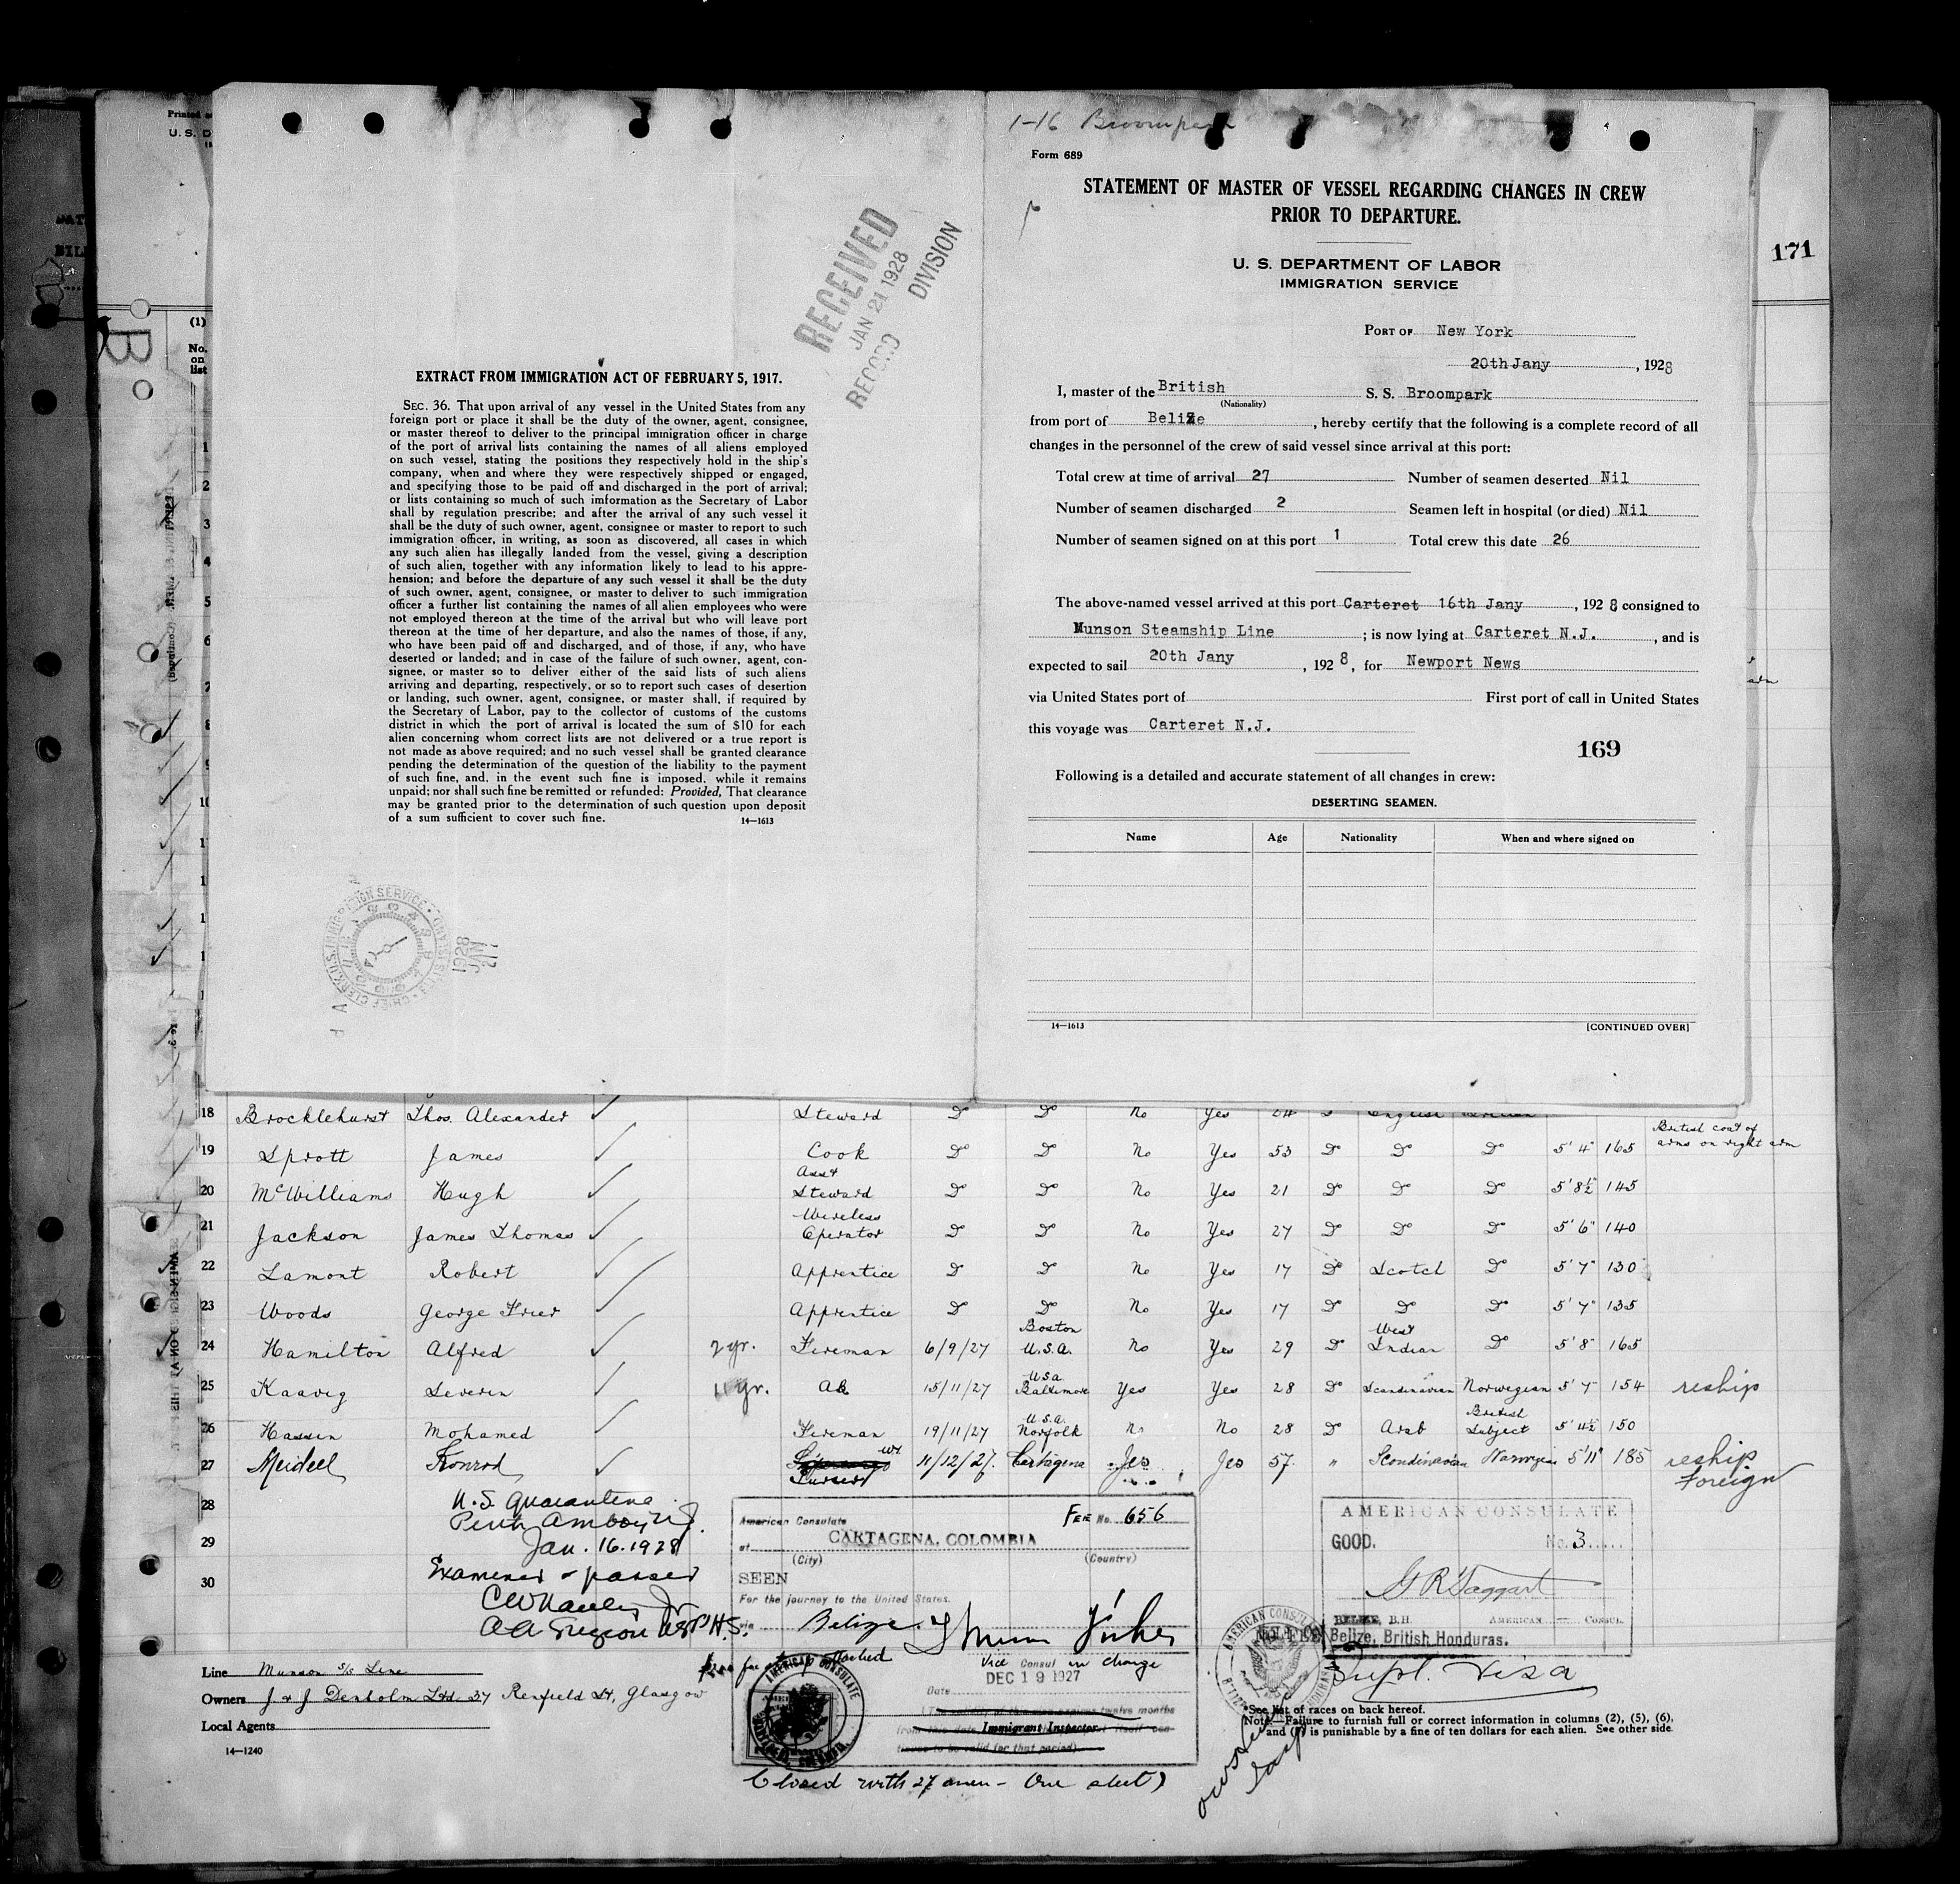 171
Printed
U. S. D
(1)
No.
on
list
B
RECEIVED
JAN 21 1928
RECORD DIVISION
EXTRACT FROM IMMIGRATION ACT OF FEBRUARY 5, 1917.
SEC. 36. That upon arrival of any vessel in the United States from any
foreign port or place it shall be the duty of the owner, agent, consignee,
or master thereof to deliver to the principal immigration officer in charge
of the port of arrival lists containing the names of all aliens employed
on such vessel, stating the positions they respectively hold in the ship's
company, when and where they were respectively shipped or engaged,
and specifying those to be paid off and discharged in the port of arrival;
or lists containing so much of such imformation as the Secretary of Labor
shall by regulation prescribe; and after the arrival of any such vessel it
shall be the duty of such owner, agent, consignee or master to report to such
immigration officer, in writing, as soon as discovered, all cases in which
any such alien has illegally landed from the vessel, giving a description
of such alien, together with any information likely to lead to his appre-
hension; and before the departure of any such vessel it shall be the duty
of such owner, agent, consignee, or master to deliver to such immigration
officer a further list containing the names of all alien employees who were
not employed thereon at the time of the arrival but who will leave port
thereon at the time of her departure, and also the names of those, if any,
who have been paid off and discharged, and of those, if any, who have
deserted or landed; and in case of the failure of such owner, agent, con-
signee, or master so to deliver either of the said lists of such aliens
arriving and departing, respectively, or so to report such cases of desertion
or landing, such owner, agent, consignee, or master shall, if required by
the Secretary of Labor, pay to the collector of customs of the customs
district in which the port of arrival is located the sum of $10 for each
alien concerning whom correct lists are not delivered or a true report is
not made as above required; and no such vessel shall be granted clearance
pending the determination of the question of the liability to the payment
of such fine, and, in the event such fine is imposed, while it remains
unpaid; nor shall such fine be remitted or refunded: Provided, That clearance
may be granted prior to the determination of such question upon deposit
of a sum sufficient to cover such fine.
14—1613
1-16 Broompark
Form 689
STATEMENT OF MASTER OF VESSEL REGARDING CHANGES IN CREW
PRIOR TO DEPARTURE.
U. S. DEPARTMENT OF LABOR
IMMIGRATION SERVICE
PORT OF New York
20th Jany, 1928
I, master of the British S. S. Broompark
(Nationality)
from port of Belize, hereby certify that the following is a complete record of all
changes in the personnel of the crew of said vessel since arrival at this port:
Total crew at time of arrival 27 Number of seamen deserted Nil
Number of seamen discharged 2 Seamen left in hospital (or died) Nil
Number of seamen signed on at this port 1 Total crew this date 26
The above-named vessel arrived at this port Carteret 16th Jany, 1928 consigned to
Munson Steamship Line; is now lying at Carteret N.J., and is
expected to sail 20th Jany, 1928, for Newport News
via United States port of First port of call in United States
this voyage was Carteret N.J.
169
Following is a detailed and accurate statement of all changes in crew:
DESERTING SEAMEN.
Name Age Nationality When and where signed on
14—1613 [CONTINUED OVER]
18 Brocklehurst Thos. Alexander Steward Do Do No Yes Do English
19 Sprott James Cook Do Do No Yes 53 Do Do Do 5' 4" 165 British coat of arms on right arm
20 McWilliams Hugh Asst Steward Do Do No Yes 21 Do Do Do 5' 8½ 145
21 Jackson James Thomas Wireless Operator Do Do No Yes 27 Do Do Do 5' 6" 140
22 Lamont Robert Apprentice Do Do No Yes 17 Do Scotch Do 5' 7" 130
23 Woods George Frier Apprentice Do Do No Yes 17 Do Do Do 5' 7" 135
24 Hamilton Alfred 2 yr. Fireman 6/9/27 Boston U.S.A. No Yes 29 Do West Indian Do 5' 8 165
25 Kaavig Severin 11 yr. AB 15/11/27 USA Baltimore Yes Yes 28 Do Scandinavian Norwegian 5' 7" 154 reship
26 Hassin Mohamed Fireman 19/11/27 U.S.A. Norfolk No No 28 Do Arab British Subject 5' 11½ 150
27 Meidell Konrod Purser 11/12/27. Cartagena Yes Yes 57 " Scandinavian Norwegian 5'11" 185 reship Foreign
28
29
30
U.S. Quarantine
Perth Amboy N.J.
Jan. 16. 1928
Examined & passed
American Consulate Fee No. 656
at CARTAGENA, COLOMBIA
(City) (Country)
SEEN
For the journey to the United States.
via Belize.
Vice Consul in charge
DEC 19 1927
Date
Immigrant Inspector
AMERICAN CONSULATE
GOOD. No. 3
G R Taggart
BELIZE, B.H. AMERICAN CONSUL.
Belize, British Honduras.
Supl. Visa
Line Munson S/S Line
Owners J & J Denholm Ltd. 27 Renfield St, Glasgow
Local Agents
14—1240
*See list of races on back hereof.
Note.—Failure to furnish full or correct information in columns (2), (5), (6),
and (7) is punishable by a fine of ten dollars for each alien. See other side.
Closed with 27 men - One alert)